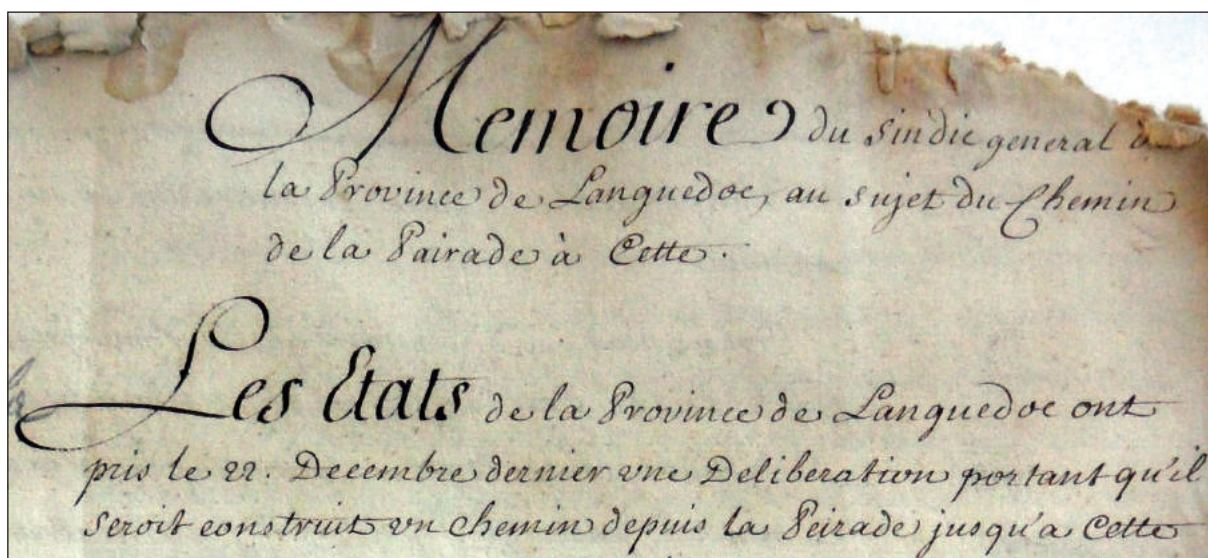 Memoire du sindic general
la Province de Languedoc, au sujet du Chemin
de la Pairade à Cette.
Les Etats de la Province de Languedoc ont
pris le 22. Decembre dernier une Deliberation portant qu'il
seroit construit un chemin depuis la Peirade jusqu'a Cette